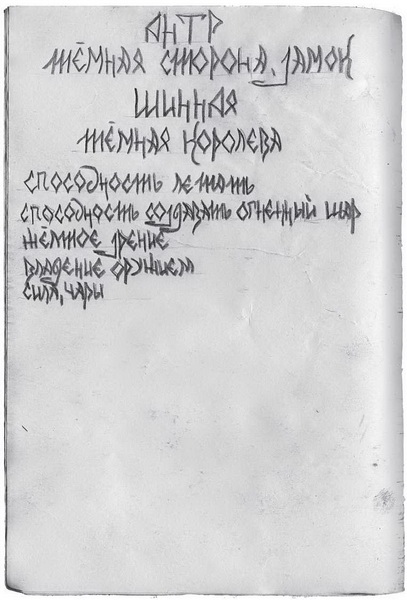 АНТР
ТЁМНАЯ СТОРОНА, ЗАМОК
ШИННАЯ
ТЁМНАЯ КОРОЛЕВА
СПОСОБНОСТЬ ЛЕТАТЬ
СПОСОБНОСТЬ СОЗДАВАТЬ ОГНЕННЫЙ ШАР
ТЁМНОЕ ЗРЕНИЕ
ВЛАДЕНИЕ ОРУЖИЕМ
СИЛА, ЧАРЫ